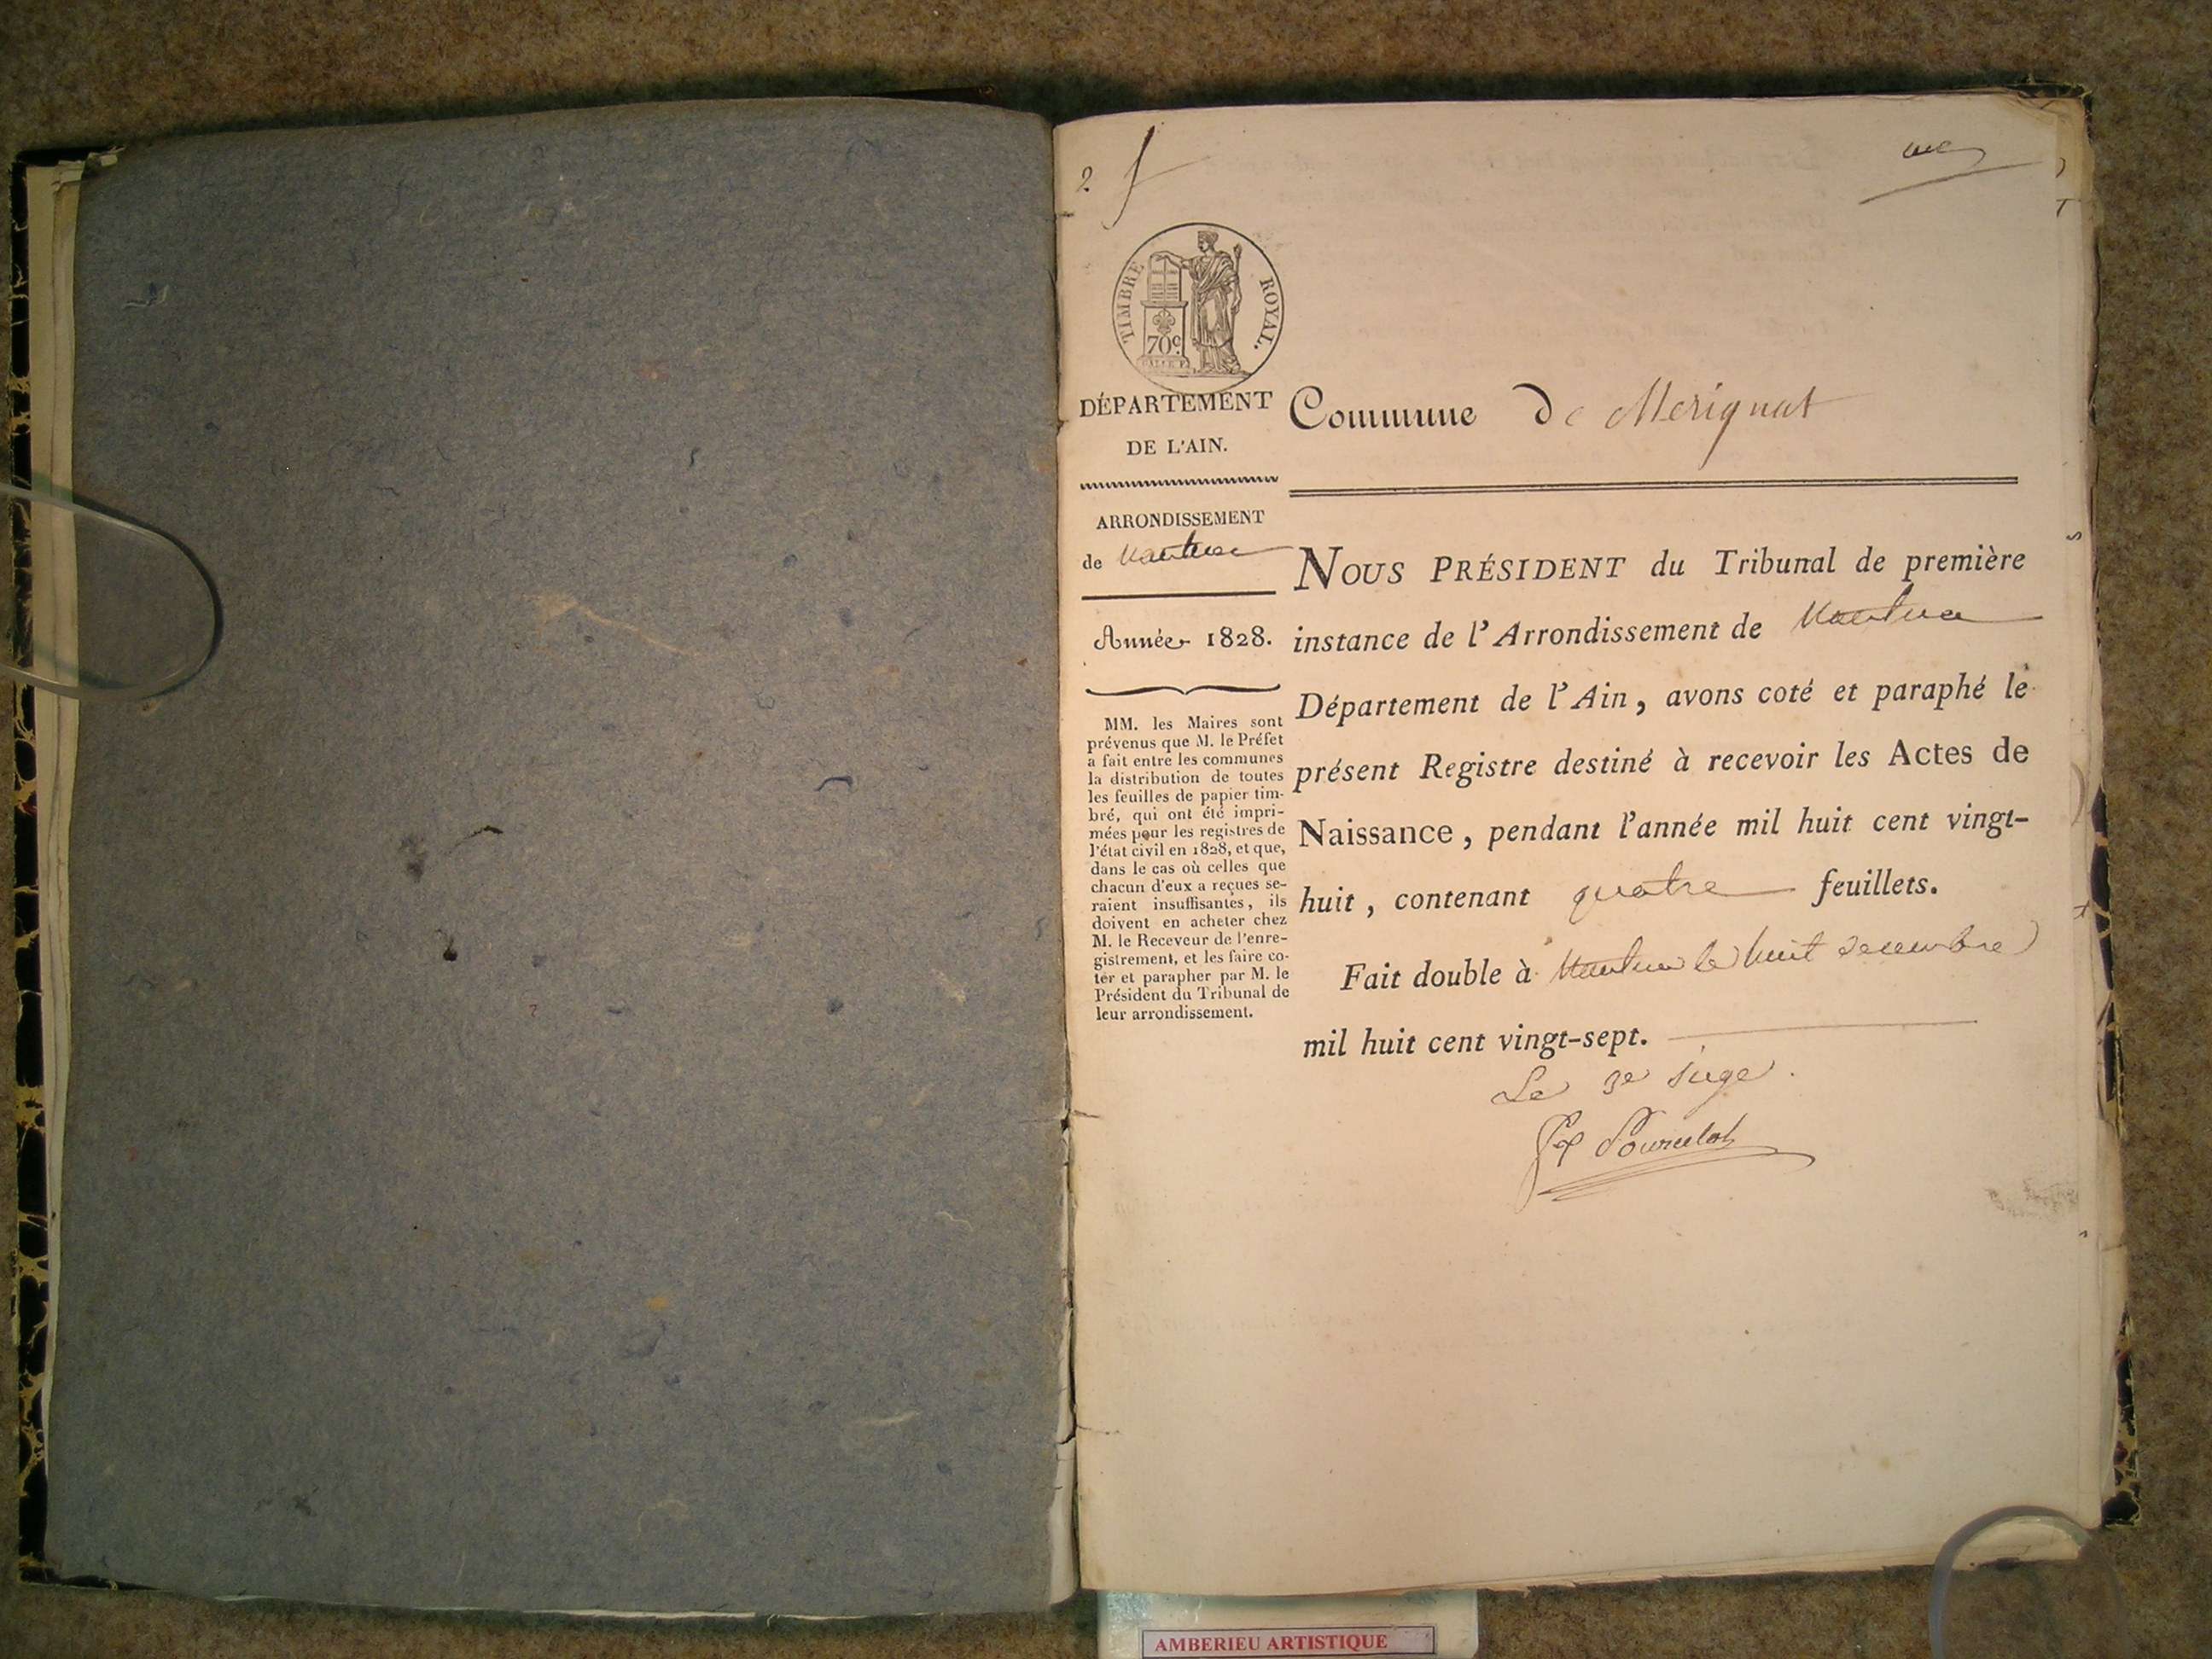 2.
TIMBRE ROYAL.
70c.
DÉPARTEMENT
DE L'AIN.
Commune de Merignat
ARRONDISSEMENT
de Nantua
Année 1828.
MM. les Maires sont
prévenus que M. le Préfet
a fait entre les communes
la distribution de toutes
les feuilles de papier tim-
bré, qui ont été impri-
mées pour les registres de
l'état civil en 1828, et que,
dans le cas où celles que
chacun d'eux a reçues se-
raient insuffisantes, ils
doivent en acheter chez
M. le Receveur de l'enre-
gistrement, et les faire co-
ter et parapher par M. le
Président du Tribunal de
leur arrondissement.
NOUS PRÉSIDENT du Tribunal de première
instance de l'Arrondissement de Nantua
Département de l'Ain, avons coté et paraphé le
présent Registre destiné à recevoir les Actes de
Naissance, pendant l'année mil huit cent vingt-
huit, contenant quatre feuillets.
Fait double à Nantua le huit decembre
mil huit cent vingt-sept.
Le 3e juge.
AMBERIEU ARTISTIQUE